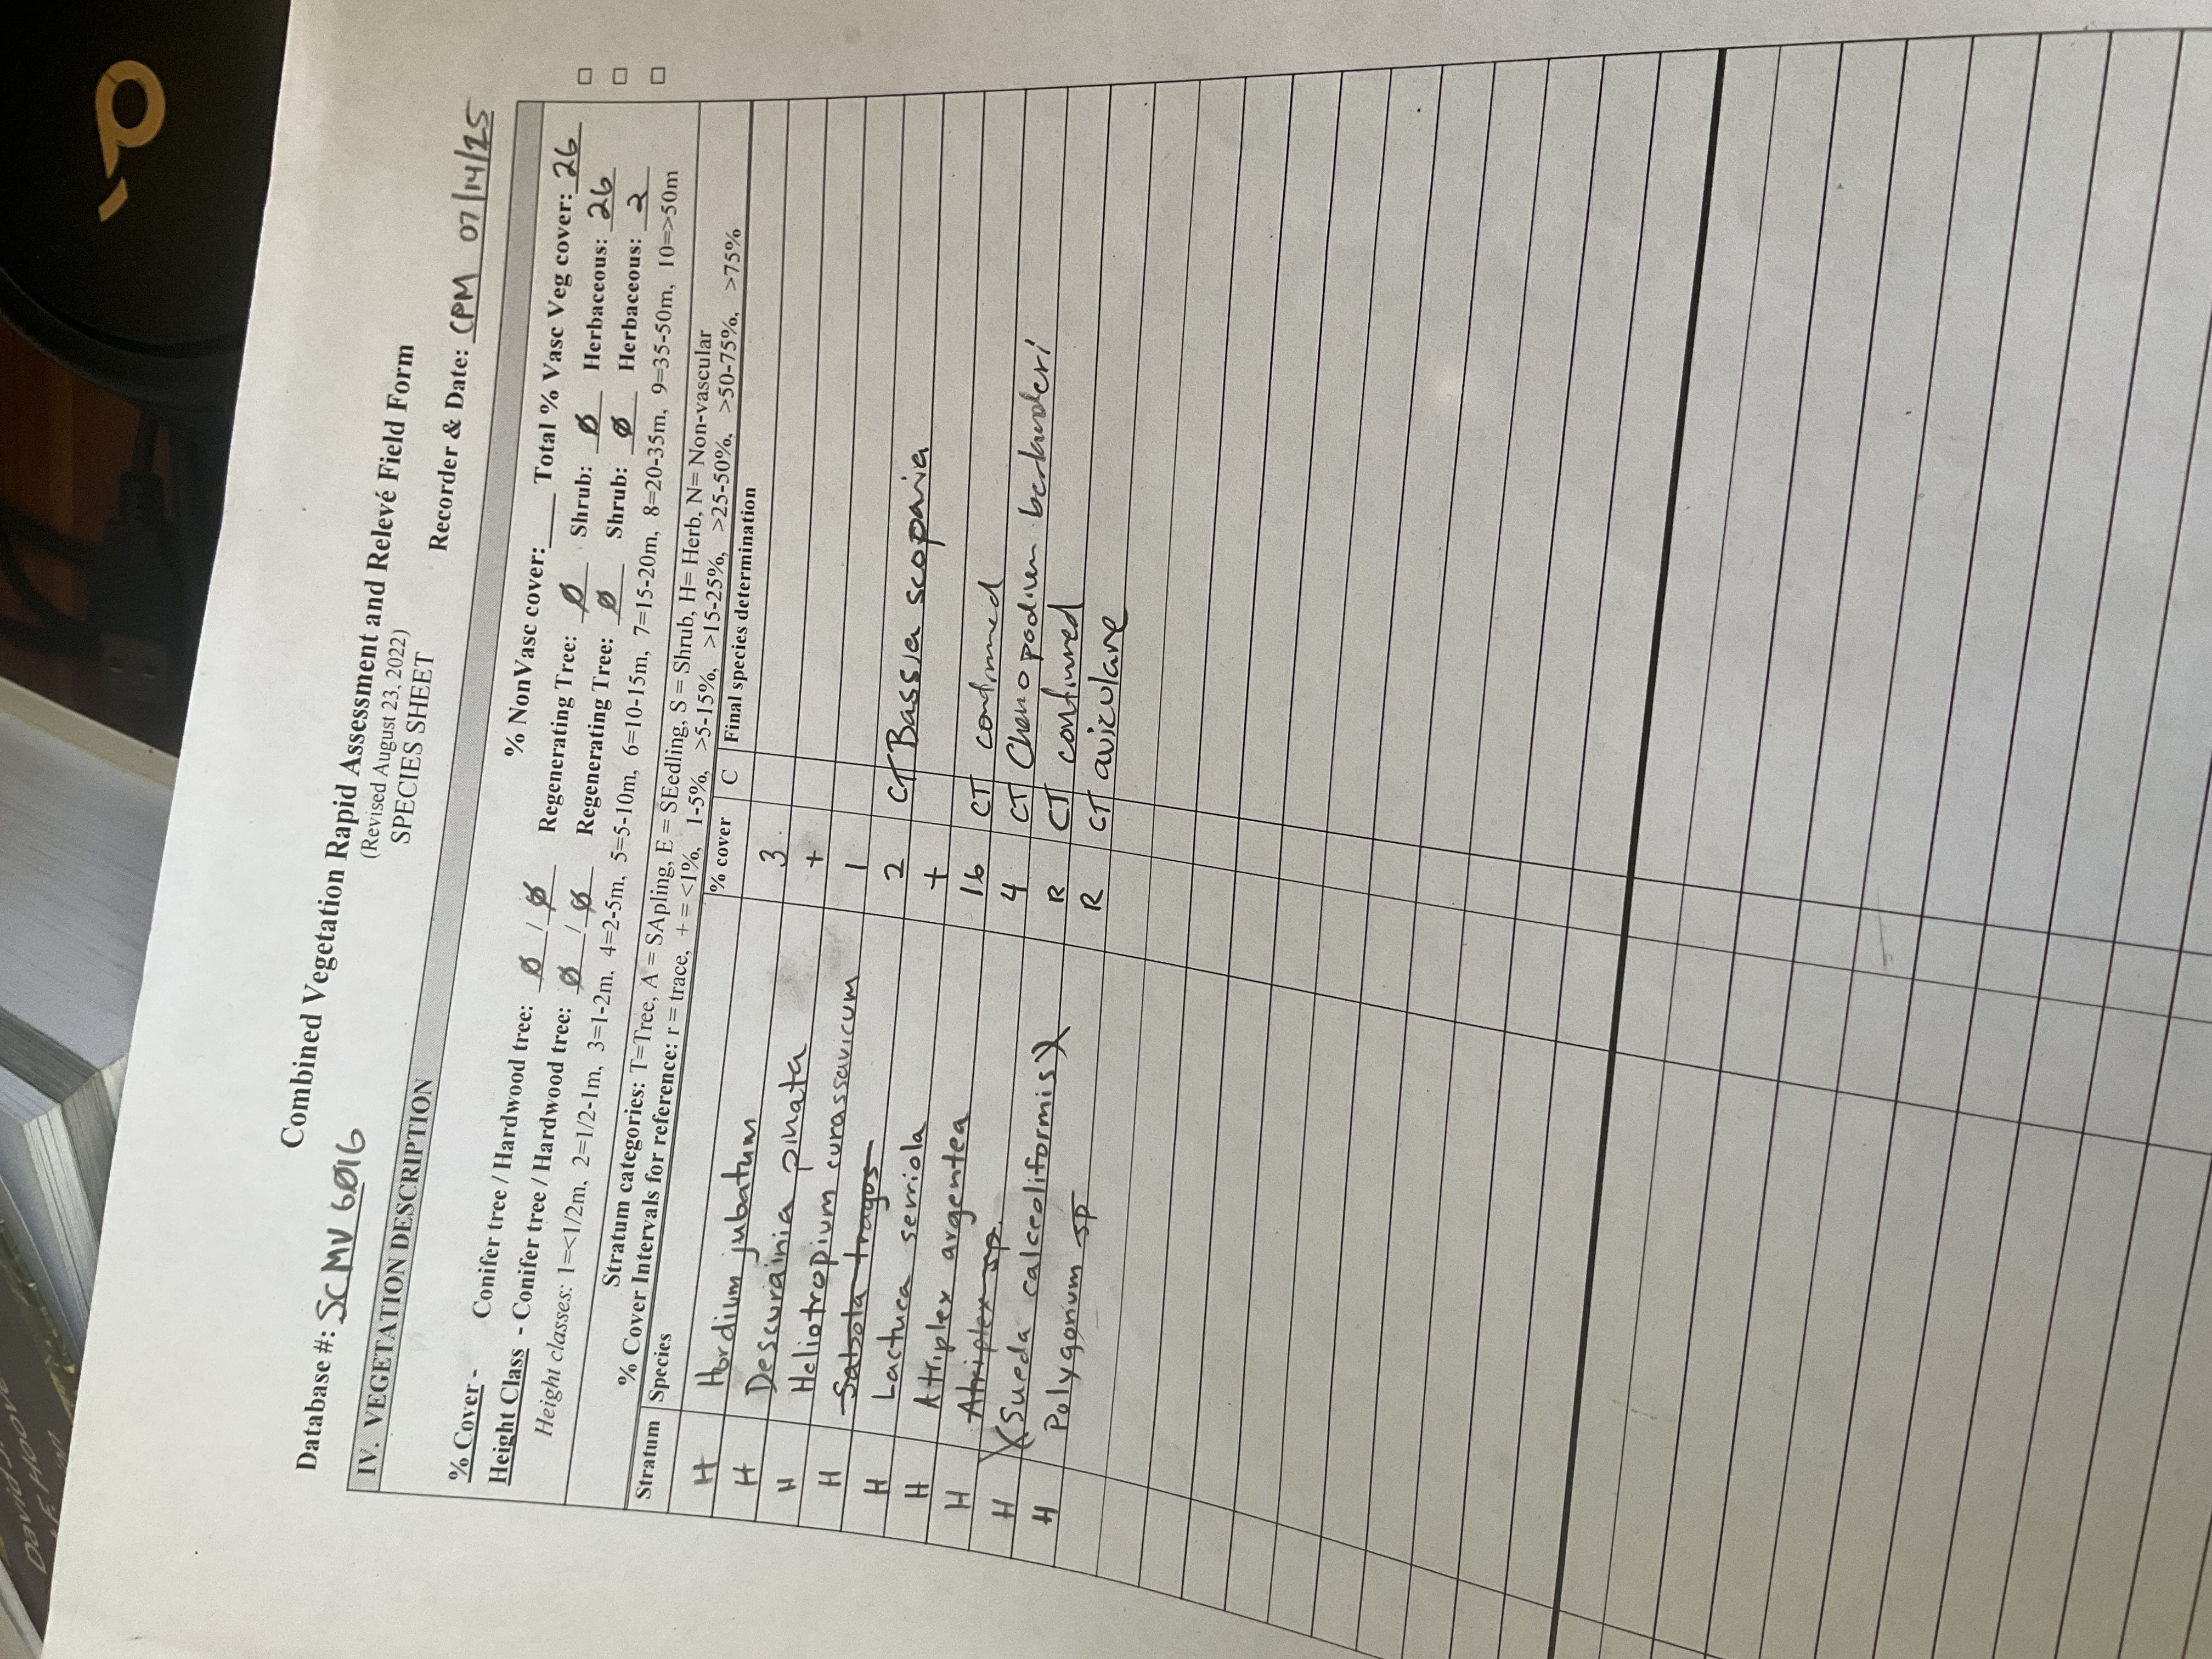 Combined Vegetation Rapid Assessment and Relevé Field Form
(Revised August 23, 2022)
SPECIES SHEET
Database #: SCMV 6016 Recorder & Date: CPM 07/14/25
IV. VEGETATION DESCRIPTION
% NonVasc cover: ___ Total % Vasc Veg cover: 26
% Cover - Conifer tree / Hardwood tree: Ø / Ø Regenerating Tree: Ø Shrub: Ø Herbaceous: 26 □
Height Class - Conifer tree / Hardwood tree: Ø / Ø Regenerating Tree: Ø Shrub: Ø Herbaceous: 2 □
Height classes: 1=<1/2m, 2=1/2-1m, 3=1-2m, 4=2-5m, 5=5-10m, 6=10-15m, 7=15-20m, 8=20-35m, 9=35-50m, 10=>50m □
Stratum categories: T=Tree, A = SApling, E = SEedling, S = Shrub, H= Herb, N= Non-vascular
% Cover Intervals for reference: r = trace, + = <1%, 1-5%, >5-15%, >15-25%, >25-50%, >50-75%, >75%
Stratum Species % cover C Final species determination
H Hordium jubatum 3
H Descurainia pinata +
H Heliotropium curassavicum 1
H Salsola tragus 2 CT Bassia scoparia
H Lactuca serriola +
H Atriplex argentea 16 CT confirmed
H Atriplex sp. 4 CT Chenopodium berlanderi
H (Sueda calceoliformis) R CT confirmed
H Polygonum sp R CT aviculare
David
Hoover